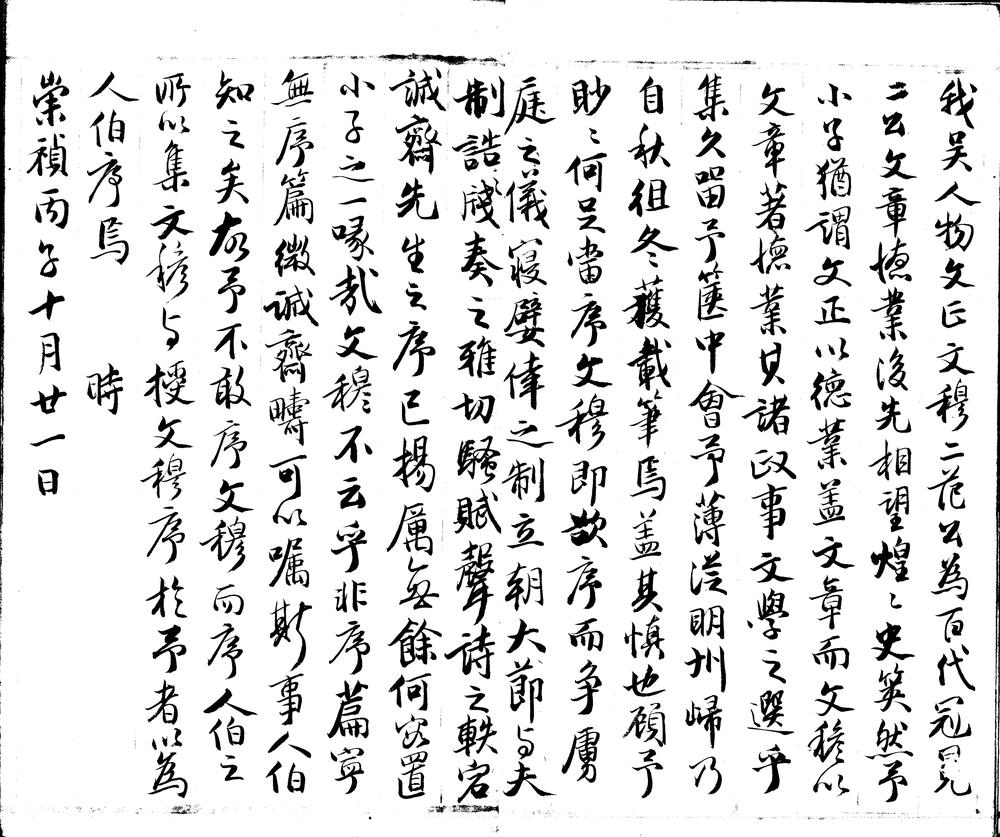 我吳人物文正文穆二范公為百代冠冕
二公文章德業後先相望煌〻史筴然予
小子猶謂文正以德業盖文章而文穆以
文章著德業其諸政事文學之選乎
集久留予篋中會予薄從明州歸乃
自秋徂冬獲載筆焉盖其慎也顧予
眇〻何足當序文穆即欲序而爭虜
庭之儀寢嬖倖之制立朝大節与夫
制誥牋奏之雅切騷賦聲詩之軼宕
誠齋先生之序已揚厲無餘何容置
小子之一喙哉文穆不云乎非序篇寧
無序篇微誠齋疇可以囑斯事人伯
知之矣故予不敢序文穆而序人伯之
所以集文穆与授文穆序於予者以為
人伯序焉 時
崇禎丙子十月廿一日